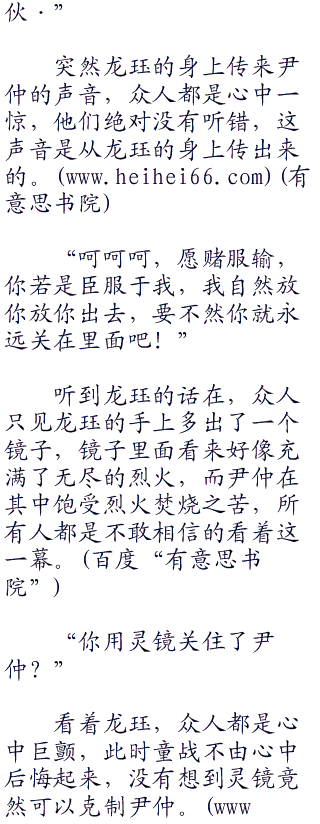 伙·”
突然龙珏的身上传来尹
仲的声音，众人都是心中一
惊，他们绝对没有听错，这
声音是从龙珏的身上传出来
的。(www.heihei66.com)(有
意思书院)
“呵呵呵，愿赌服输，
你若是臣服于我，我自然放
你放你出去，要不然你就永
远关在里面吧！”
听到龙珏的话在，众人
只见龙珏的手上多出了一个
镜子，镜子里面看来好像充
满了无尽的烈火，而尹仲在
其中饱受烈火焚烧之苦，所
有人都是不敢相信的看着这
一幕。(百度“有意思书
院”)
“你用灵镜关住了尹
仲？”
看着龙珏，众人都是心
中巨颤，此时童战不由心中
后悔起来，没有想到灵镜竟
然可以克制尹仲。(www